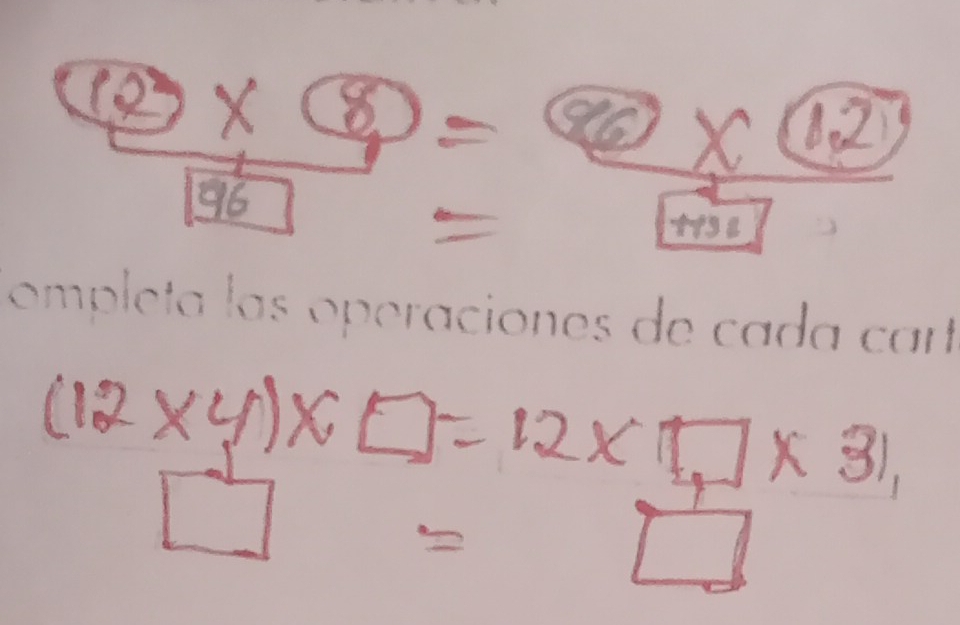 12 x 8 = 96 x 12
96 =
ompleta las operaciones de cada cart
(12 x 4) x □ = 12 x (□ x 3)
=